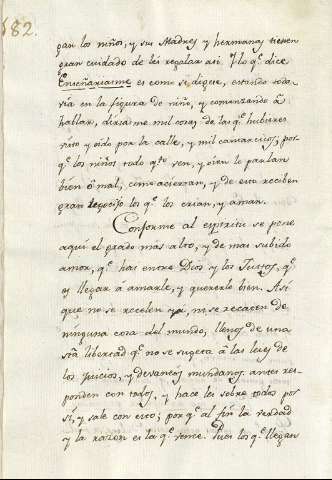 582.
gan los niños, y sus Madres, y hermanas tienen
gran cuidado de les regalar asi. Y lo q.e dice
Enseñariasme es como se dixere, estando toda-
via en la figura de niño, y comenzando á
hablar, dirasme mil cosas de las q.e hubieres
visto y oido por la calle, y mil cantarcicos, por-
q.e los niños todo q.to ven, y oien le parlan
bien ó mal, como aciertan, y de esto reciben
gran regocijo los q.e los crian, y aman.
Conforme al espiritu se pone
aqui el grado mas alto, y de mas subido
amor, q.e hai entre Dios y los Justos, q.e
es llegar á amarle, y quererle bien. Asi
que no se recelen ya, ni se recaten de
ninguna cosa del mundo, llenos de una
sta libertad q.e no se sugeta á las leies de
los juicios, y devaneos mundanos. antes res-
ponden con todos, y hace lei sobre todos por
sí, y sale con esto; por q.e al fin la verdad
y la razon es la q.e vence. Pues los q.e llegan